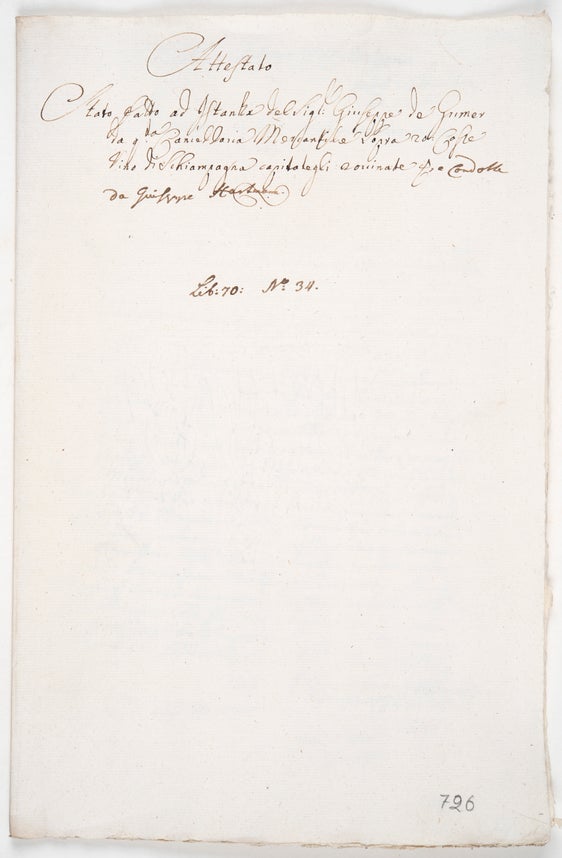 Attestato
Stato fatto ad Istanza del Sig.r Giuseppe de Gumer
da q.ta Cancell.ria Mercantile sopra 20. Ceste
Vino di Schiampagna capitategli e ruinate e condotte
da Giuseppe
Lib: 70: N.o 34.
726